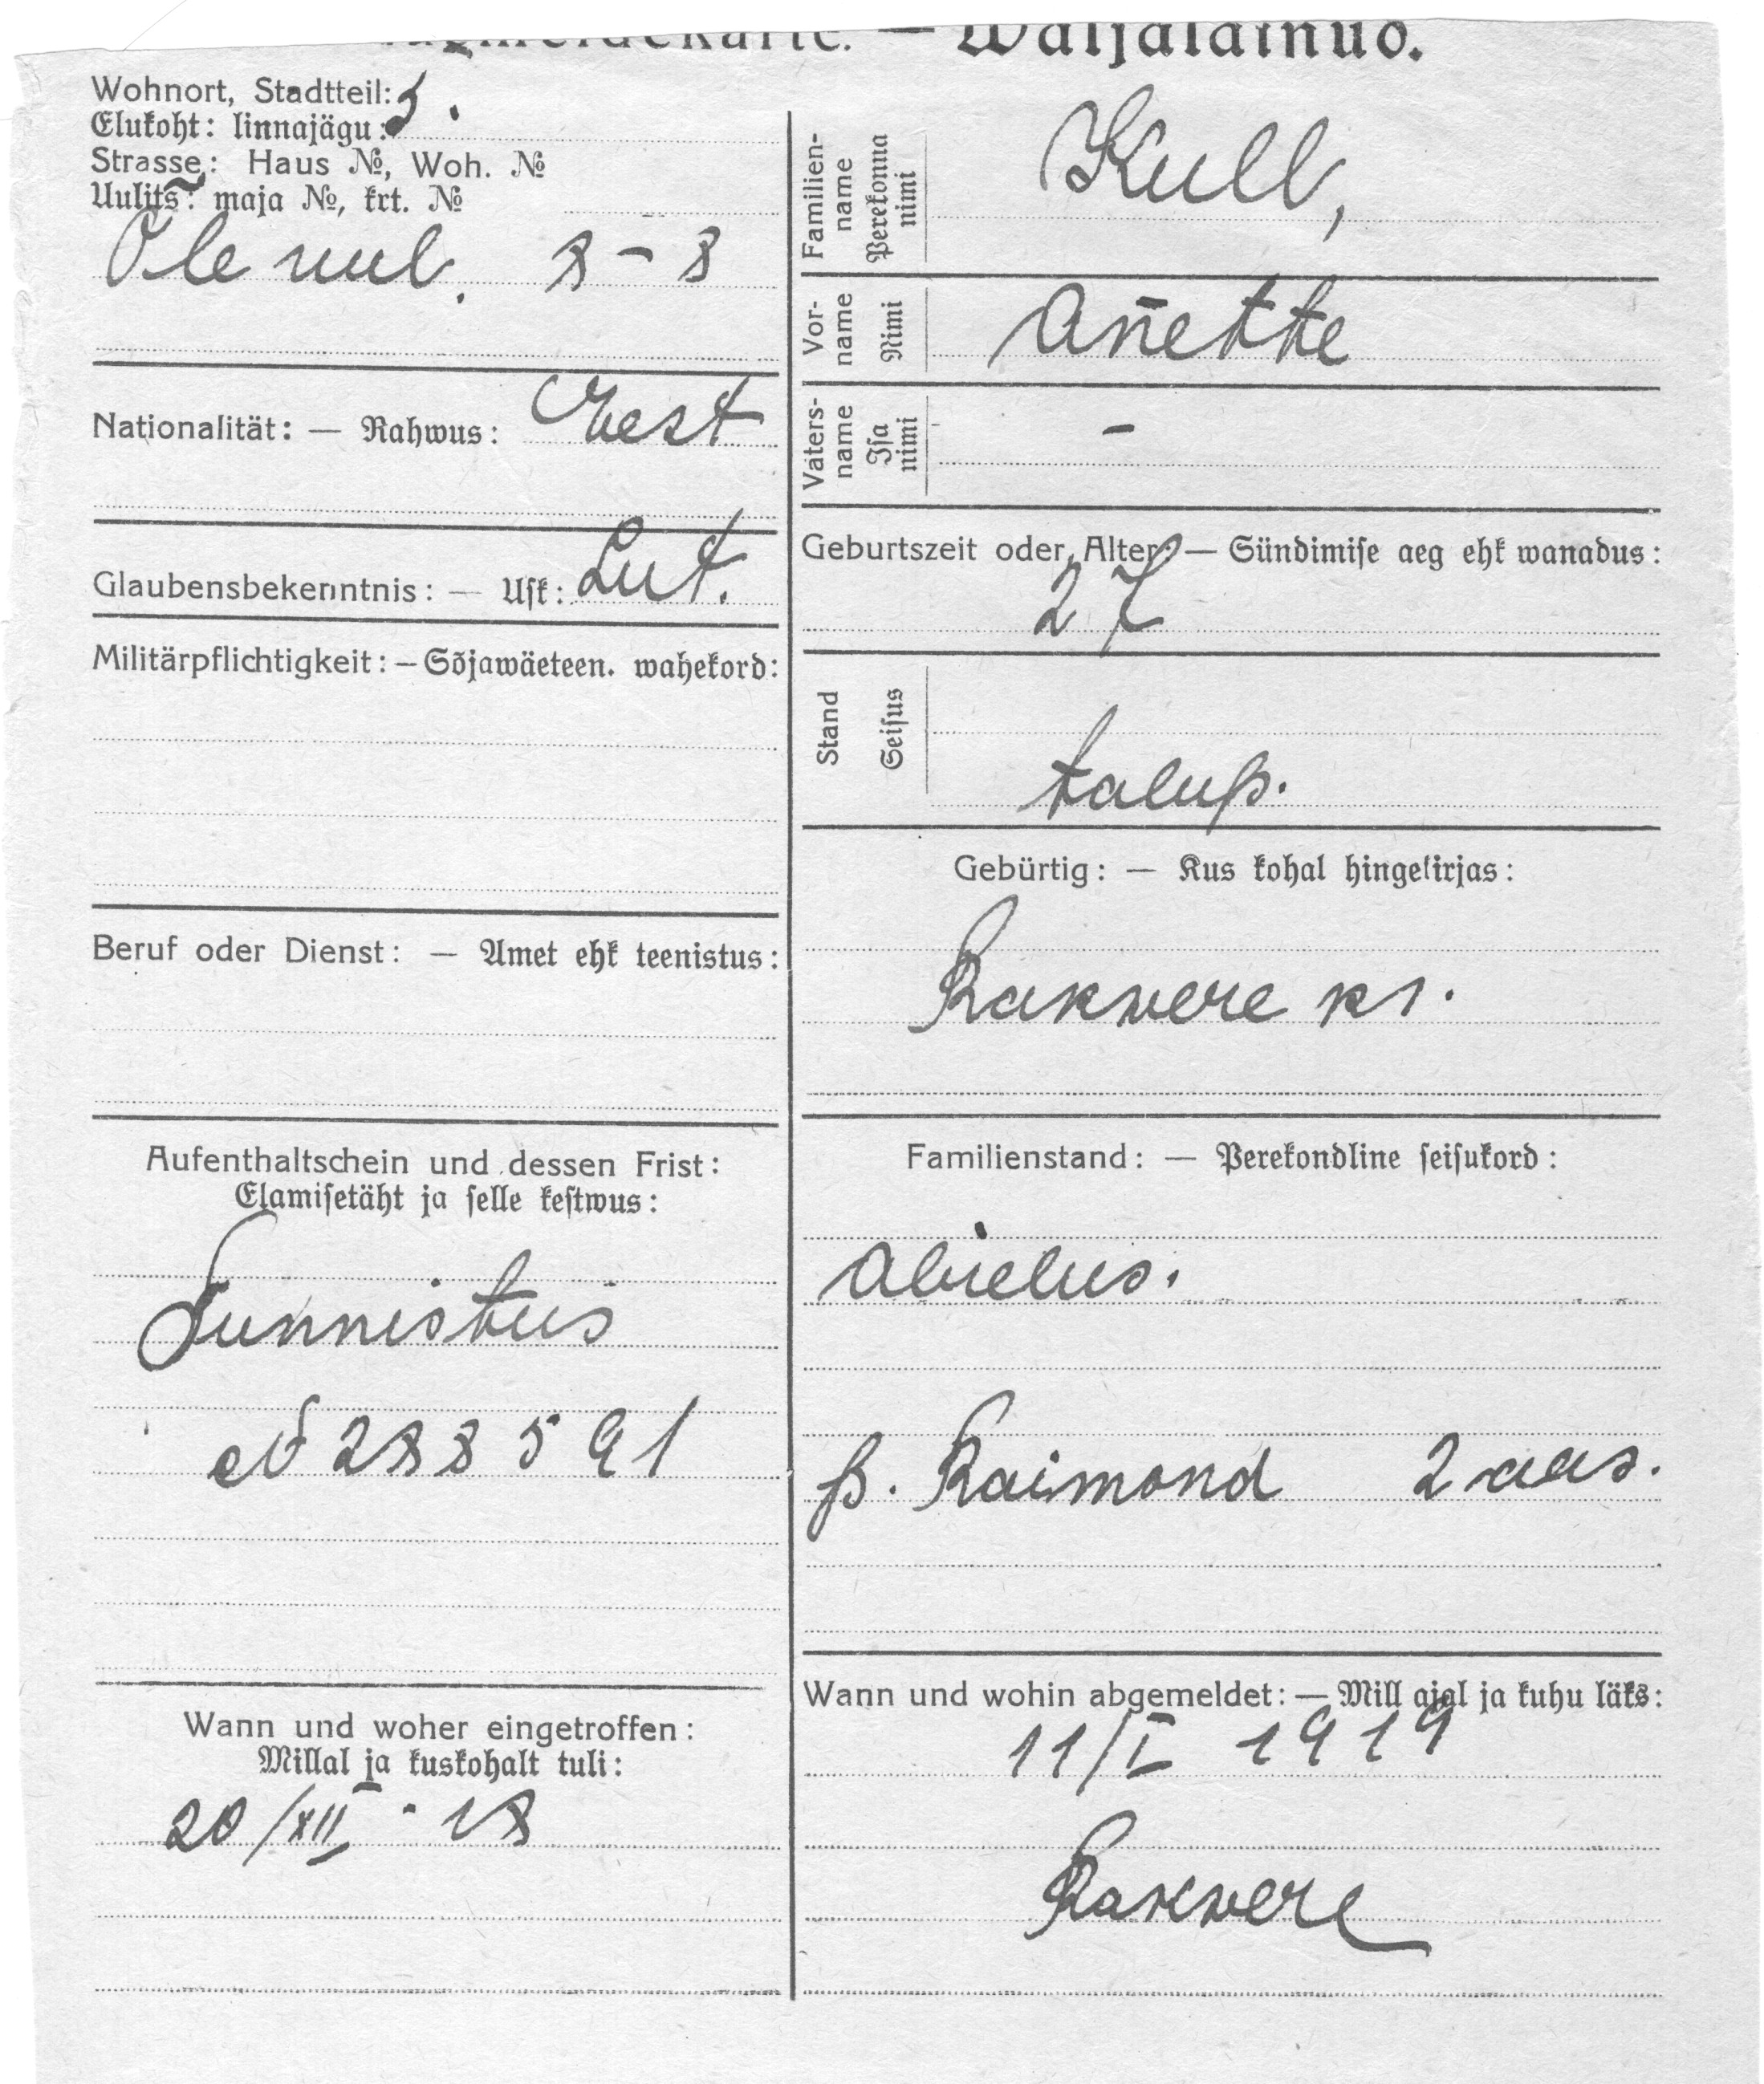 Wohnort, Stadtteil: 5.
Elukoht: linnajägu:
Strasse: Haus №, Woh. №
Uulits: maja №, krt. №
Ole uul. 8 – 8
Nationalität: — Rahwus: Eest
Glaubensbekenntnis: — Usk: Lut.
Militärpflichtigkeit: — Sõjawäeteen. wahekord:
Beruf oder Dienst: — Amet ehk teenistus:
Aufenthaltschein und dessen Frist:
Elamisetäht ja selle kestwus:
Tunnistus
№ 288591
Wann und woher eingetroffen:
Millal ja kuskohalt tuli:
20/XII · 18
— Waljalamuo.
Familien-
name
Perekonna
nimi
Kull,
Vor-
name
Nimi
An̄ette
Vaters-
name
Isa
nimi
–
Geburtszeit oder Alter: — Sündimise aeg ehk wanadus:
27
Stand
Seisus
talup.
Gebürtig: — Kus kohal hingekirjas:
Rakwere kr.
Familienstand: — Perekondline seisukord:
Abielus.
p. Raimond 2 aas.
Wann und wohin abgemeldet: — Mill ajal ja kuhu läks:
11/I 1919
Rakwere